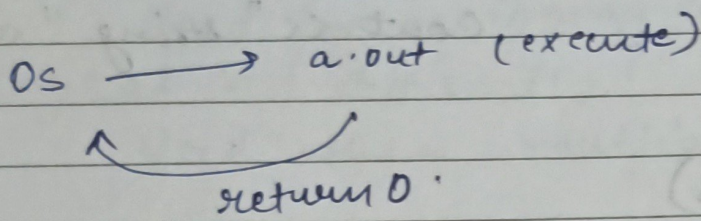 OS → a.out (execute)
return 0.